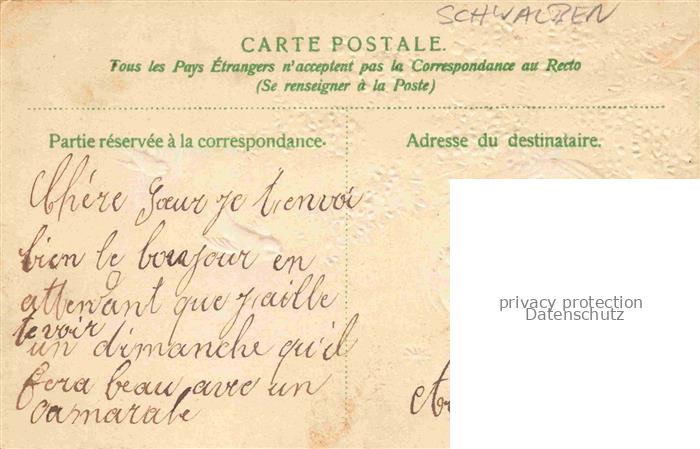 SCHWALBEN
CARTE POSTALE.
Tous les Pays Étrangers n'acceptent pas la Correspondance au Recto
(Se renseigner à la Poste)
Partie réservée à la correspondance.
Adresse du destinataire.
Chére Sœur je t'envoi
bien le bonjour en
attendant que j'aille
te voir
un dimanche qu'il
fera beau avec un
camarade
privacy protection
Datenschutz